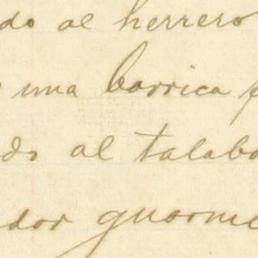 do al herrero
una barrica
do al talaba
dor guarne